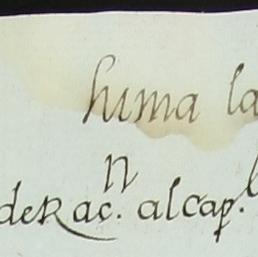 hima la
n
deRac. alcap.